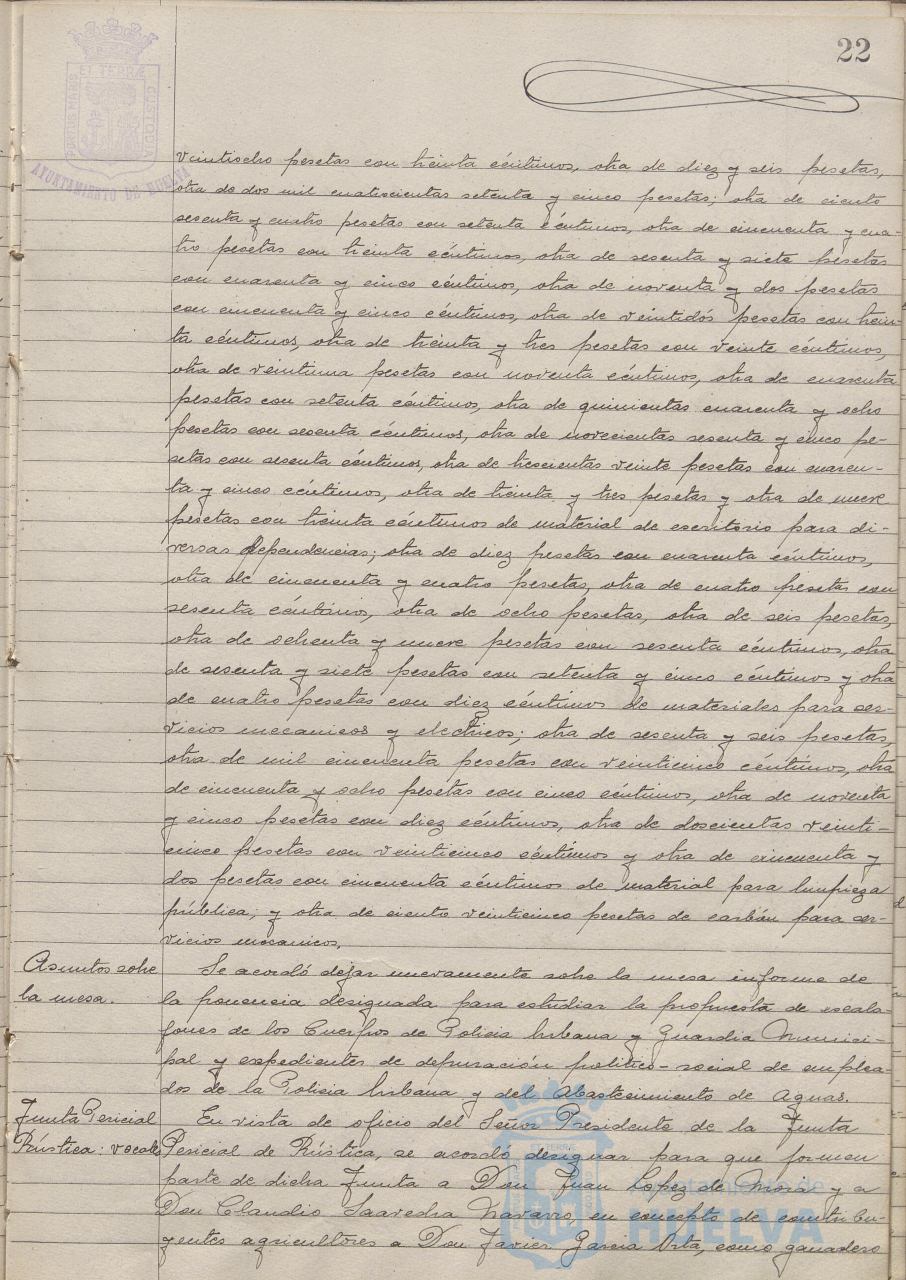 22
PORTUS MARIS ET TERRÆ CUSTODIA
AYUNTAMIENTO DE HUELVA
veintiocho pesetas con treinta céntimos, otra de diez y seis pesetas,
otra de dos mil cuatrocientas setenta y cinco pesetas; otra de ciento
sesenta y cuatro pesetas con setenta céntimos, otra de cincuenta y cua-
tro pesetas con treinta céntimos, otra de sesenta y siete pesetas
con cuarenta y cinco céntimos, otra de noventa y dos pesetas
con cincuenta y cinco céntimos, otra de veintidós pesetas con trein-
ta céntimos, otra de treinta y tres pesetas con veinte céntimos,
otra de veintiuna pesetas con noventa céntimos, otra de cuarenta
pesetas con setenta céntimos, otra de quinientas cuarenta y ocho
pesetas con sesenta céntimos, otra de novecientas sesenta y cinco pe-
setas con sesenta céntimos, otra de trescientas veinte pesetas con cuaren-
ta y cinco céntimos, otra de treinta y tres pesetas y otra de nueve
pesetas con treinta céntimos de material de escritorio para di-
versas dependencias; otra de diez pesetas con cuarenta céntimos,
otra de cincuenta y cuatro pesetas, otra de cuatro pesetas con
sesenta céntimos, otra de ocho pesetas, otra de seis pesetas,
otra de ochenta y nueve pesetas con sesenta céntimos, otra
de sesenta y siete pesetas con setenta y cinco céntimos y otra
de cuatro pesetas con diez céntimos de materiales para ser-
vicios mecanicos y electricos; otra de sesenta y seis pesetas,
otra de mil cincuenta pesetas con veinticinco céntimos, otra
de cincuenta y ocho pesetas con cinco céntimos, otra de noventa
y cinco pesetas con diez céntimos, otra de doscientas veinti-
cinco pesetas con veinticinco céntimos y otra de cincuenta y
dos pesetas con cincuenta céntimos de material para limpieza
pública; y otra de ciento veinticinco pesetas de carbón para ser-
vicios mecanicos.
Asuntos sobre
la mesa.
Se acordó dejar nuevamente sobre la mesa informe de
la ponencia designada para estudiar la propuesta de escala-
fones de los Cuerpos de Policia Urbana y Guardia Munici-
pal y expedientes de depuración politico-social de emplea-
dos de la Policia Urbana y del Abastecimiento de Aguas.
Junta Pericial
Rústica: vocales
En vista de oficio del Señor Presidente de la Junta
Pericial de Rústica, se acordó designar para que formen
parte de dicha Junta a Don Juan Lopez de Mora y a
Don Claudio Saavedra Navarro en concepto de contribu-
yentes agricultores a Don Javier Garcia Orta, como ganadero
Ayuntamiento de
HUELVA